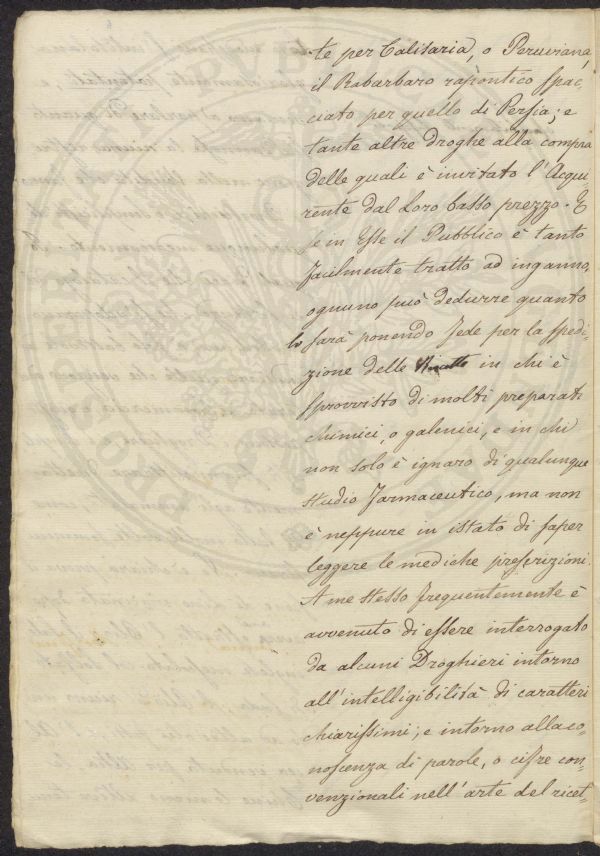 te per Calisaria, o Peruviana,
il Rabarbaro rapontico spac,
ciato per quello di Persia; e
tante altre droghe alla compra
delle quali è invitato l'Acqui
rente dal loro basso prezzo. E
se in esse il Pubblico è tanto
facilmente tratto ad inganno,
ognuno può dedurre quanto
lo sarà ponendo fede per la spedi-
zione delle Ricette in chi è
sprovvisto di molti preparati
chimici, o galenici, e in chi
non solo è ignaro di qualunque
studio farmaceutico, ma non
è neppure in istato di saper
leggere le mediche prescrizioni.
A me stesso frequentemente è
avvenuto di essere interrogato
da alcuni Droghieri intorno
all'intelligibilità di caratteri
chiarissimi; e intorno alla co-
noscenza di parole, o cifre con-
venzionali nell'arte del ricet-